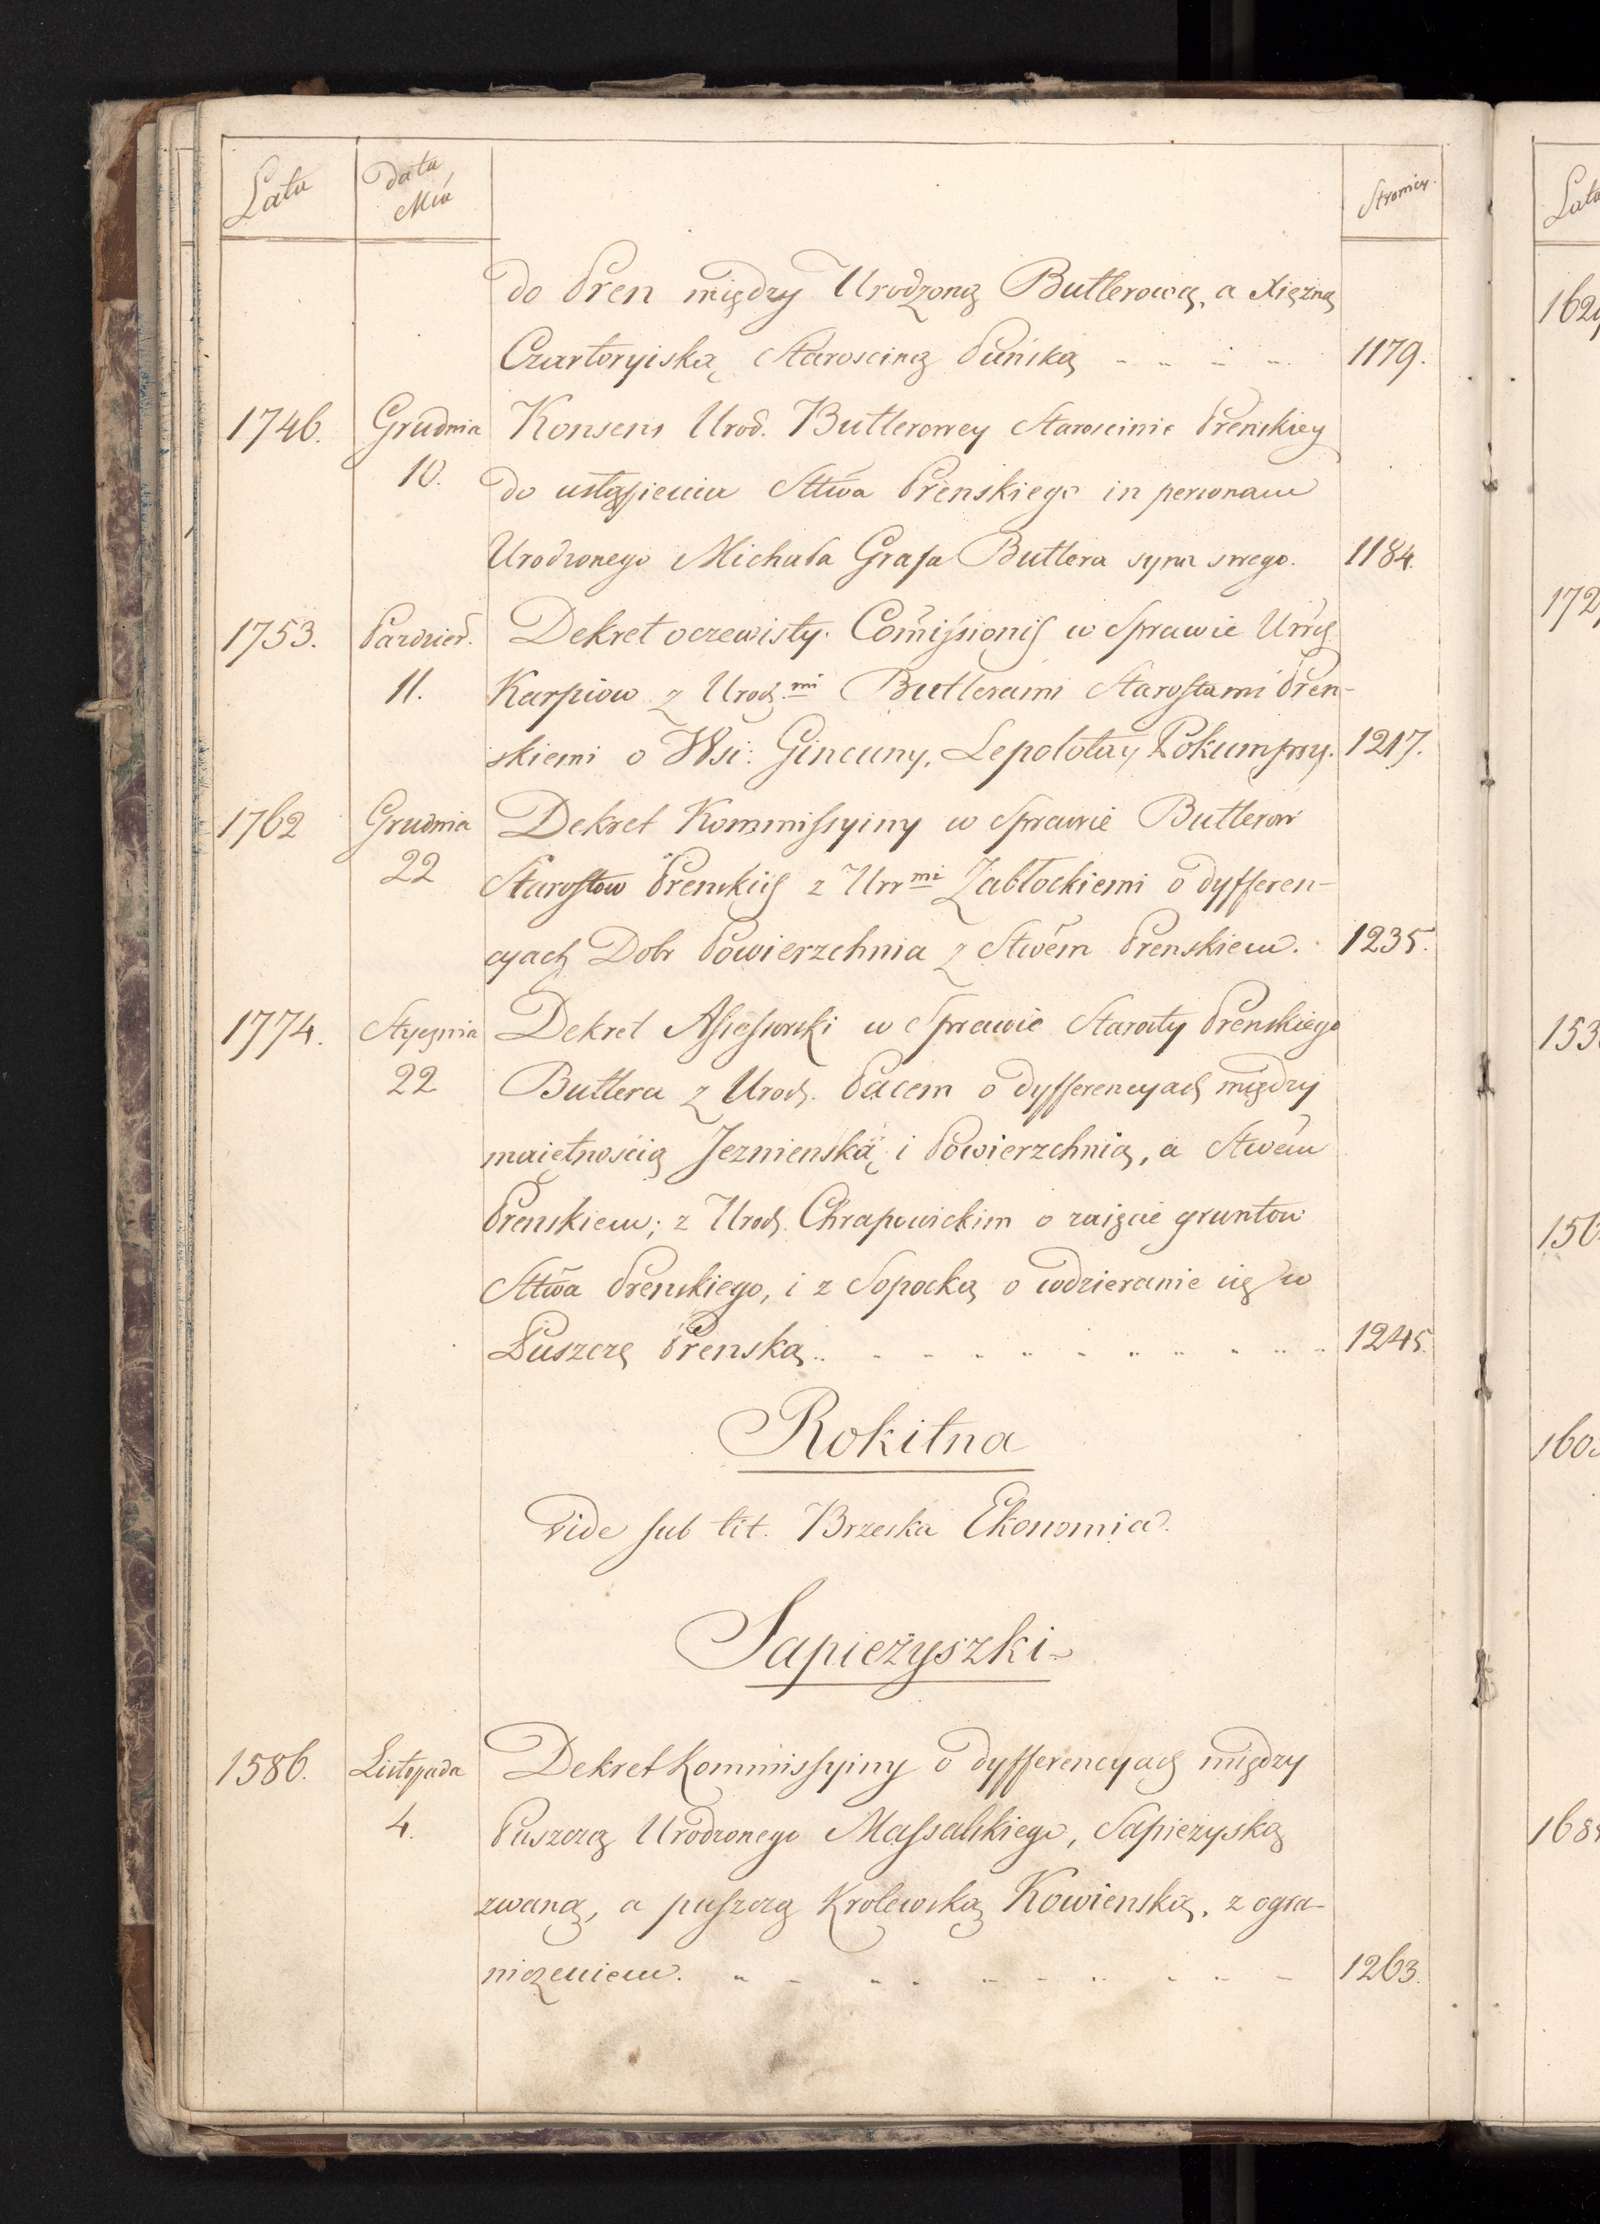 Lata
Data
Mca
Stronicy.
do Pren między Urodzoną Butlerową, a Xiężną
Czartoryiską Starosciną Puńską 1179.
1746. Grudnia Konsens Urod. Butlerowey Staroscinie Preńskiey
10. do ustąpienia Sttwa Preńskiego in personam
Urodzonego Michała Grafa Butlera syna swego. 1184.
1753. Pazdzier. Dekret oczewisty Comissionis w Sprawie Urrch
11. Karpiow z Urod.mi Butlerami Starostami Pren-
skiemi o Wsi: Gincuny, Lepołoty, 1217.
1762 Grudnia Dekret Kommissyiny w Sprawie Butlerow
22 Starostow Prenskich z Urrmi Zabłockiemi o dyfferen-
cyach Dobr Powierzchnia z Stwem Prenskiem. 1235.
1774. Stycznia Dekret Assessorski w Sprawie Starosty Prenskiego
22 Butlera z Urodz. Pacem o dyfferencyach między
maiętnością Jeznienską i Powierzchnią, a Stwem
Prenskiem; z Urodz. Chrapowickim o zaięcie gruntow
Sttwa Prenskiego, i z Sopocką o wdzieranie się w
Puszczę Prenską 1245.
Rokitna
vide sub lit. Brzeska Ekonomia.
Sapieżyszki
1586. Listopada Dekret Kommissyiny o dyfferencyach między
4. Puszczą Urodzonego Massalskiego, Sapieżyską
zwaną, a puszczą Krolewską Kowienską, z ogra-
niczeniem. 1263.
Lata
162
172
153
156
160
168